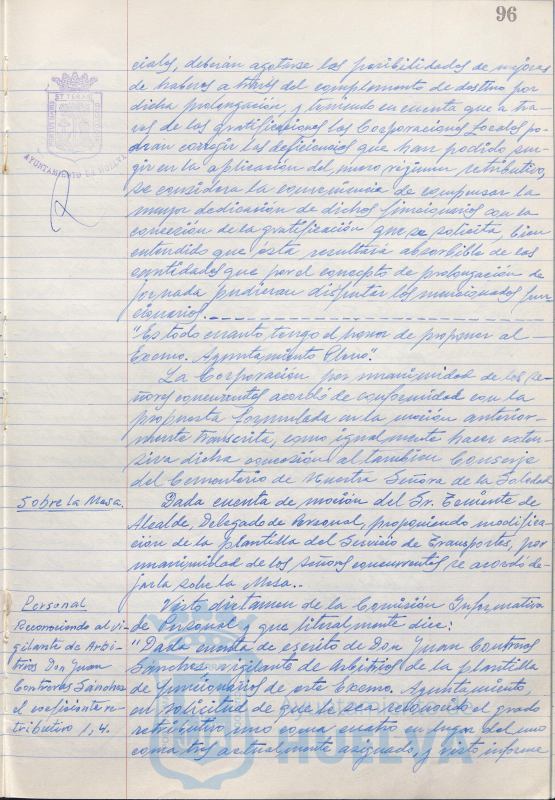 96
ciales, deberán agotarse las posibilidades de mejoras
de haberes a través del complemento de destino por
dicha prolongación, y teniendo en cuenta que a tra
vés de las gratificaciones las Corporaciones Locales po-
drán corregir las deficiencias que han podido sur-
gir en la aplicación del nuevo régimen retributivo,
se considera la conveniencia de compensar la
mayor dedicación de dichos funcionarios con la
concesión de la gratificación que se solicita, bien
entendido que ésta resultaría absorbible de las
cantidades que por el concepto de prolongación de
jornada pudieran disfrutar los mencionados fun
cionarios.
"Es todo cuanto tengo el honor de proponer al
Excmo. Ayuntamiento Pleno".
La Corporación por unanimidad de los se-
ñores concurrentes acordó de conformidad con la
propuesta formulada en la moción anterior-
mente transcrita, como igualmente hacer exten-
siva dicha concesión al tambien Conserje
del Cementerio de Nuestra Señora de la Soledad
Sobre la Mesa.
Dada cuenta de moción del Sr. Teniente de
Alcalde, Delegado de Personal, proponiendo modifica-
ción de la plantilla del Servicio de Transportes, por
unanimidad de los señores concurrentes, se acordó de-
jarla sobre la Mesa.
Personal
Reconociendo al vi-
gilante de Arbi-
trios Don Juan
Contreras Sánchez
el coeficiente re-
tributivo 1,4.
Visto dictamen de la Comisión Informativa
de Personal, que literalmente dice:
"Dada cuenta de escrito de Don Juan Contreras
Sánchez, vigilante de Arbitrios de la plantilla
de funcionarios de este Excmo. Ayuntamiento,
en solicitud de que le sea reconocido el grado
retributivo uno coma cuatro en lugar del uno
coma tres actualmente asignado, y visto informe
AYUNTAMIENTO DE HUELVA
HUELVA